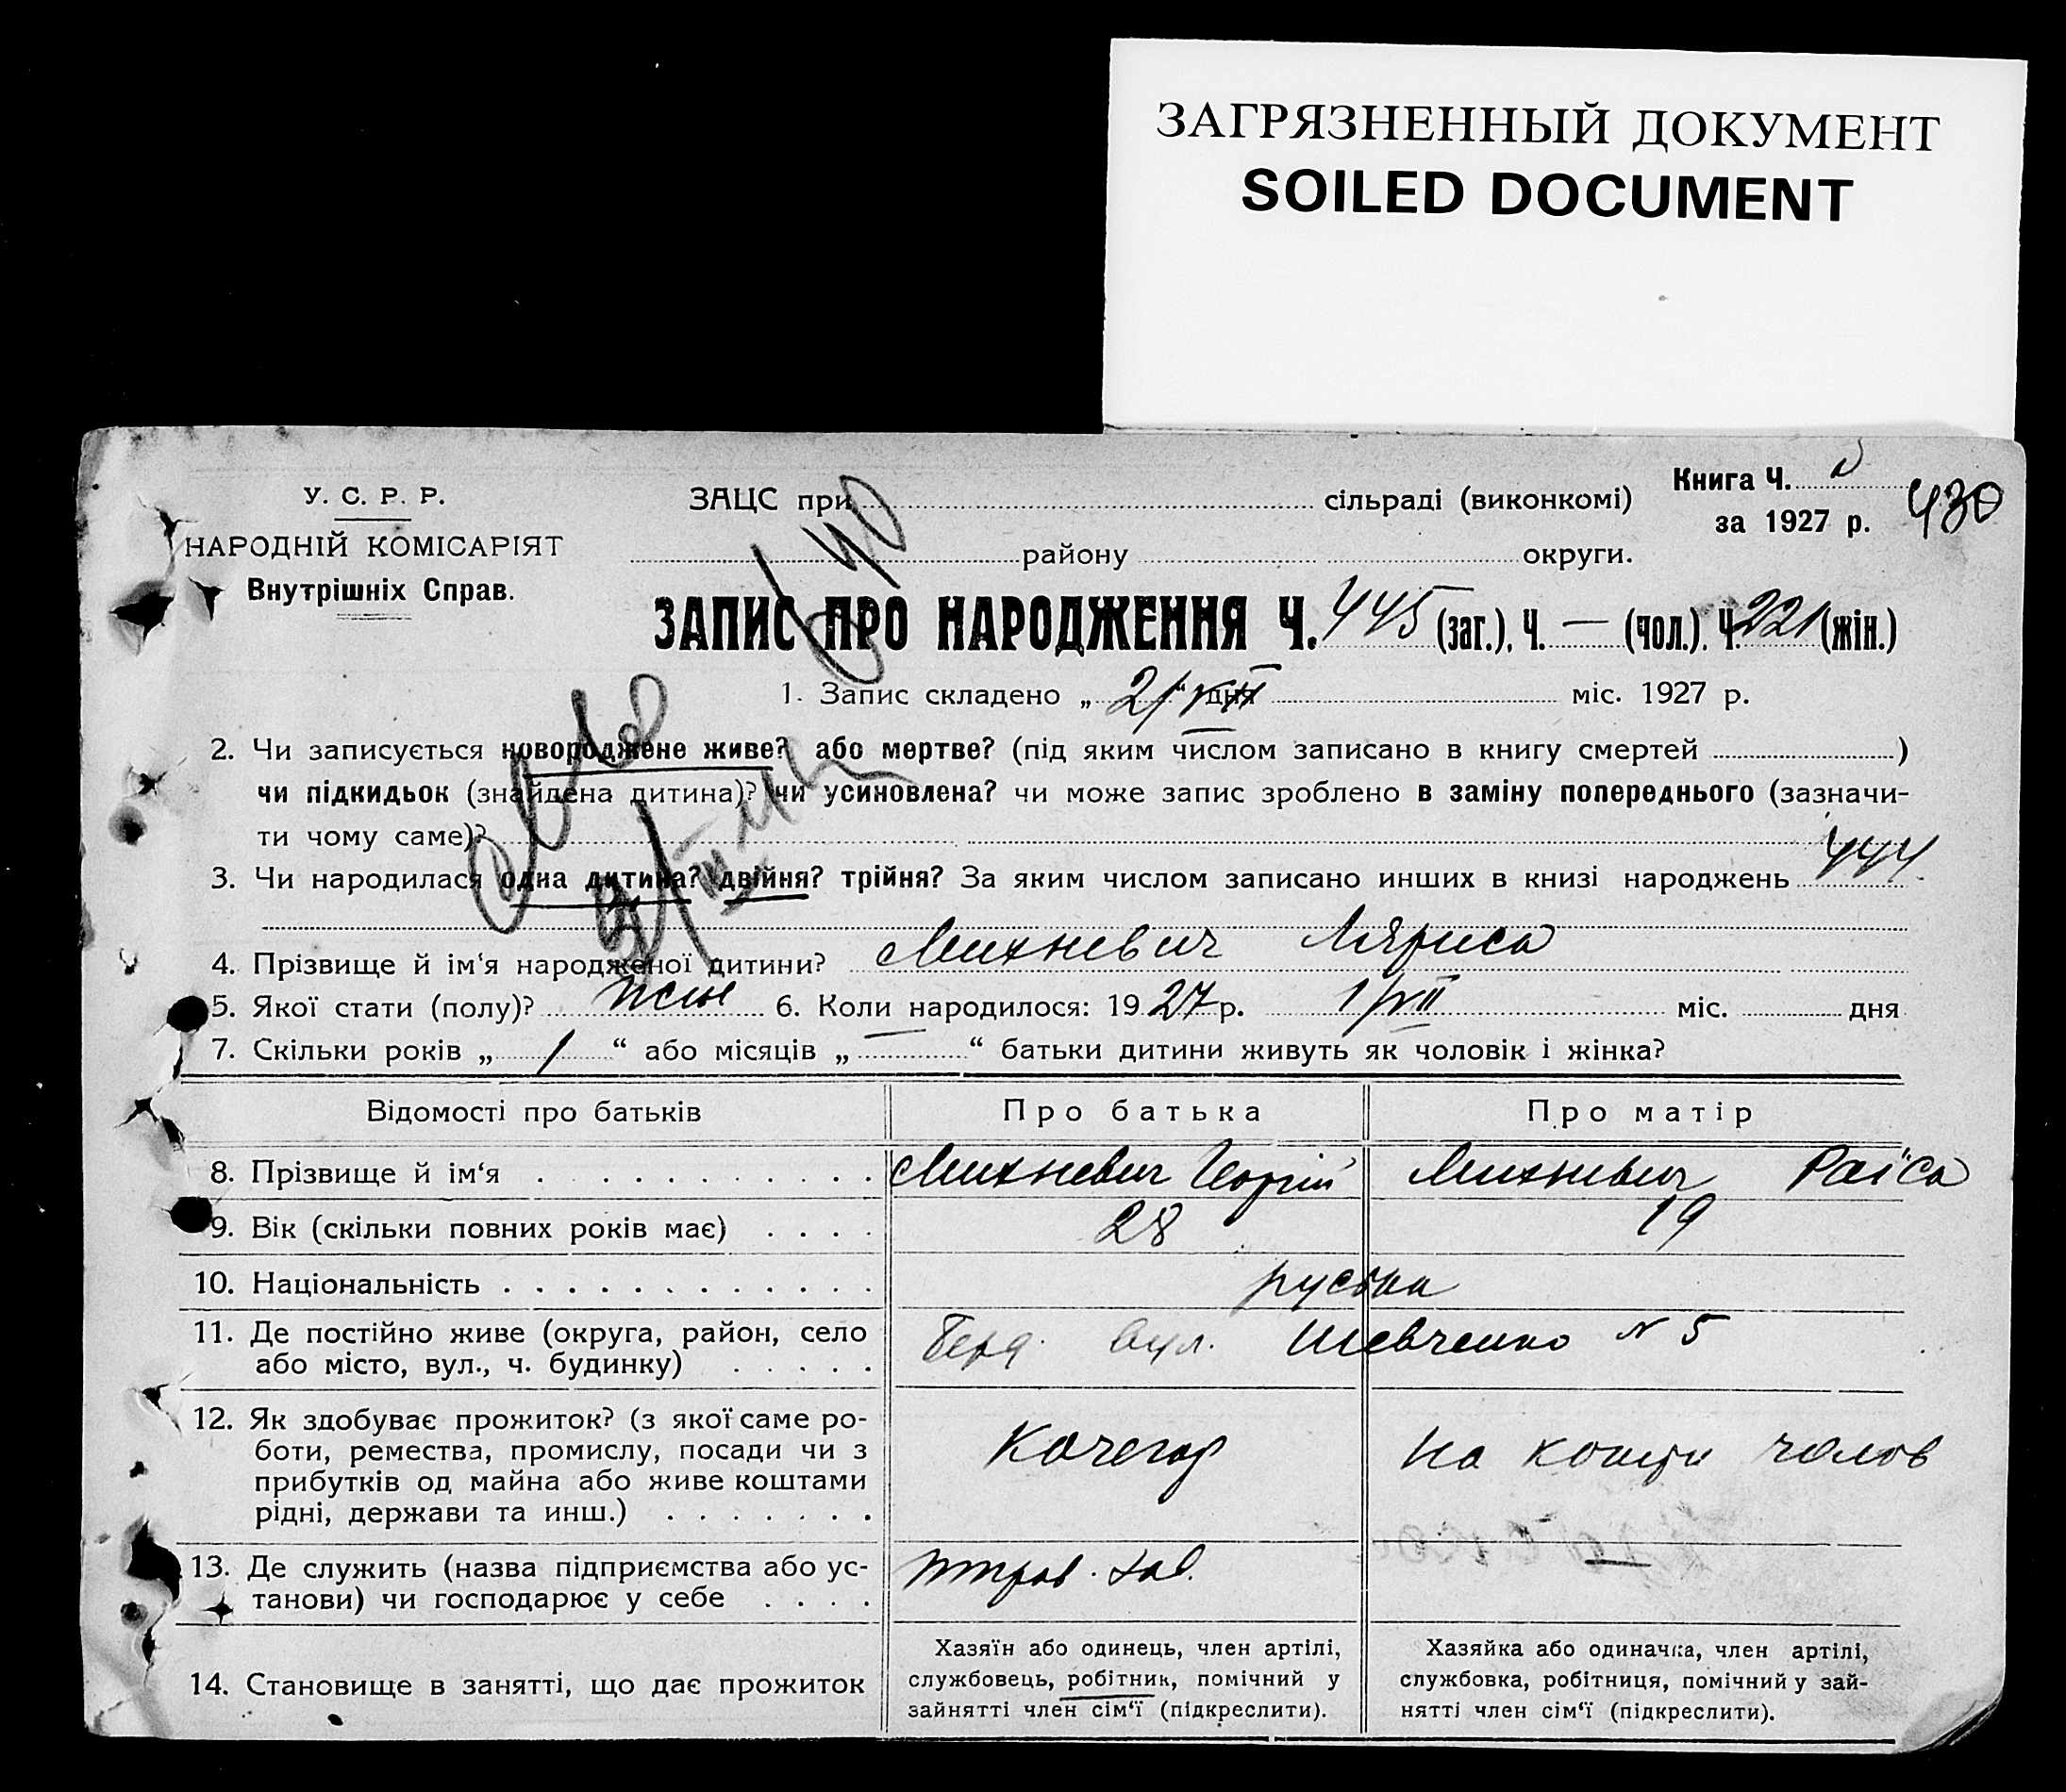 ЗАГРЯЗНЕННЫЙ ДОКУМЕНТ
SOILED DOCUMENT
У. С. Р. Р.
НАРОДНІЙ КОМІСАРІЯТ
Внутрішніх Справ.
ЗАЦС при сільраді (виконкомі)
району округи.
Книга Ч.
за 1927 р. 430
ЗАПИС ПРО НАРОДЖЕННЯ Ч. 445 (заг.), Ч. — (чол.), Ч. 221 (жін.)
1. Запис складено „21“ дня VII міс. 1927 р.
2. Чи записується новороджене живе? або мертве? (під яким числом записано в книгу смертей )
чи підкидьок (знайдена дитина)? чи усиновлена? чи може запис зроблено в заміну попереднього (зазначи-
ти чому саме)?
3. Чи народилася одна дитина? двійня? трійня? За яким числом записано инших в книзі народжень 444
4. Прізвище й ім'я народженої дитини? Михневич Ляриса
5. Якої стати (полу)? жін 6. Коли народилося: 1927 р. 1/VII міс. дня
7. Скільки років „ 1 “ або місяців „ — “ батьки дитини живуть як чоловік і жінка?
Відомості про батьків Про батька Про матір
8. Прізвище й ім'я Михневич Георгій Михневич Раїса
9. Вік (скільки повних років має) 28 19
10. Національність руська
11. Де постійно живе (округа, район, село
або місто, вул., ч. будинку) Берд. вул. Шевченко N 5
12. Як здобуває прожиток? (з якої саме ро-
боти, ремества, промислу, посади чи з
прибутків од майна або живе коштами
рідні, держави та инш.) Кочегар на кошти чолов
13. Де служить (назва підприємства або ус-
танови) чи господарює у себе зав. —
14. Становище в занятті, що дає прожиток
Хазяїн або одинець, член артілі,
службовець, робітник, помічний у
зайнятті член сім'ї (підкреслити).
Хазяйка або одиначка, член артілі,
службовка, робітниця, помічний у зай-
нятті член сім'ї (підкреслити).